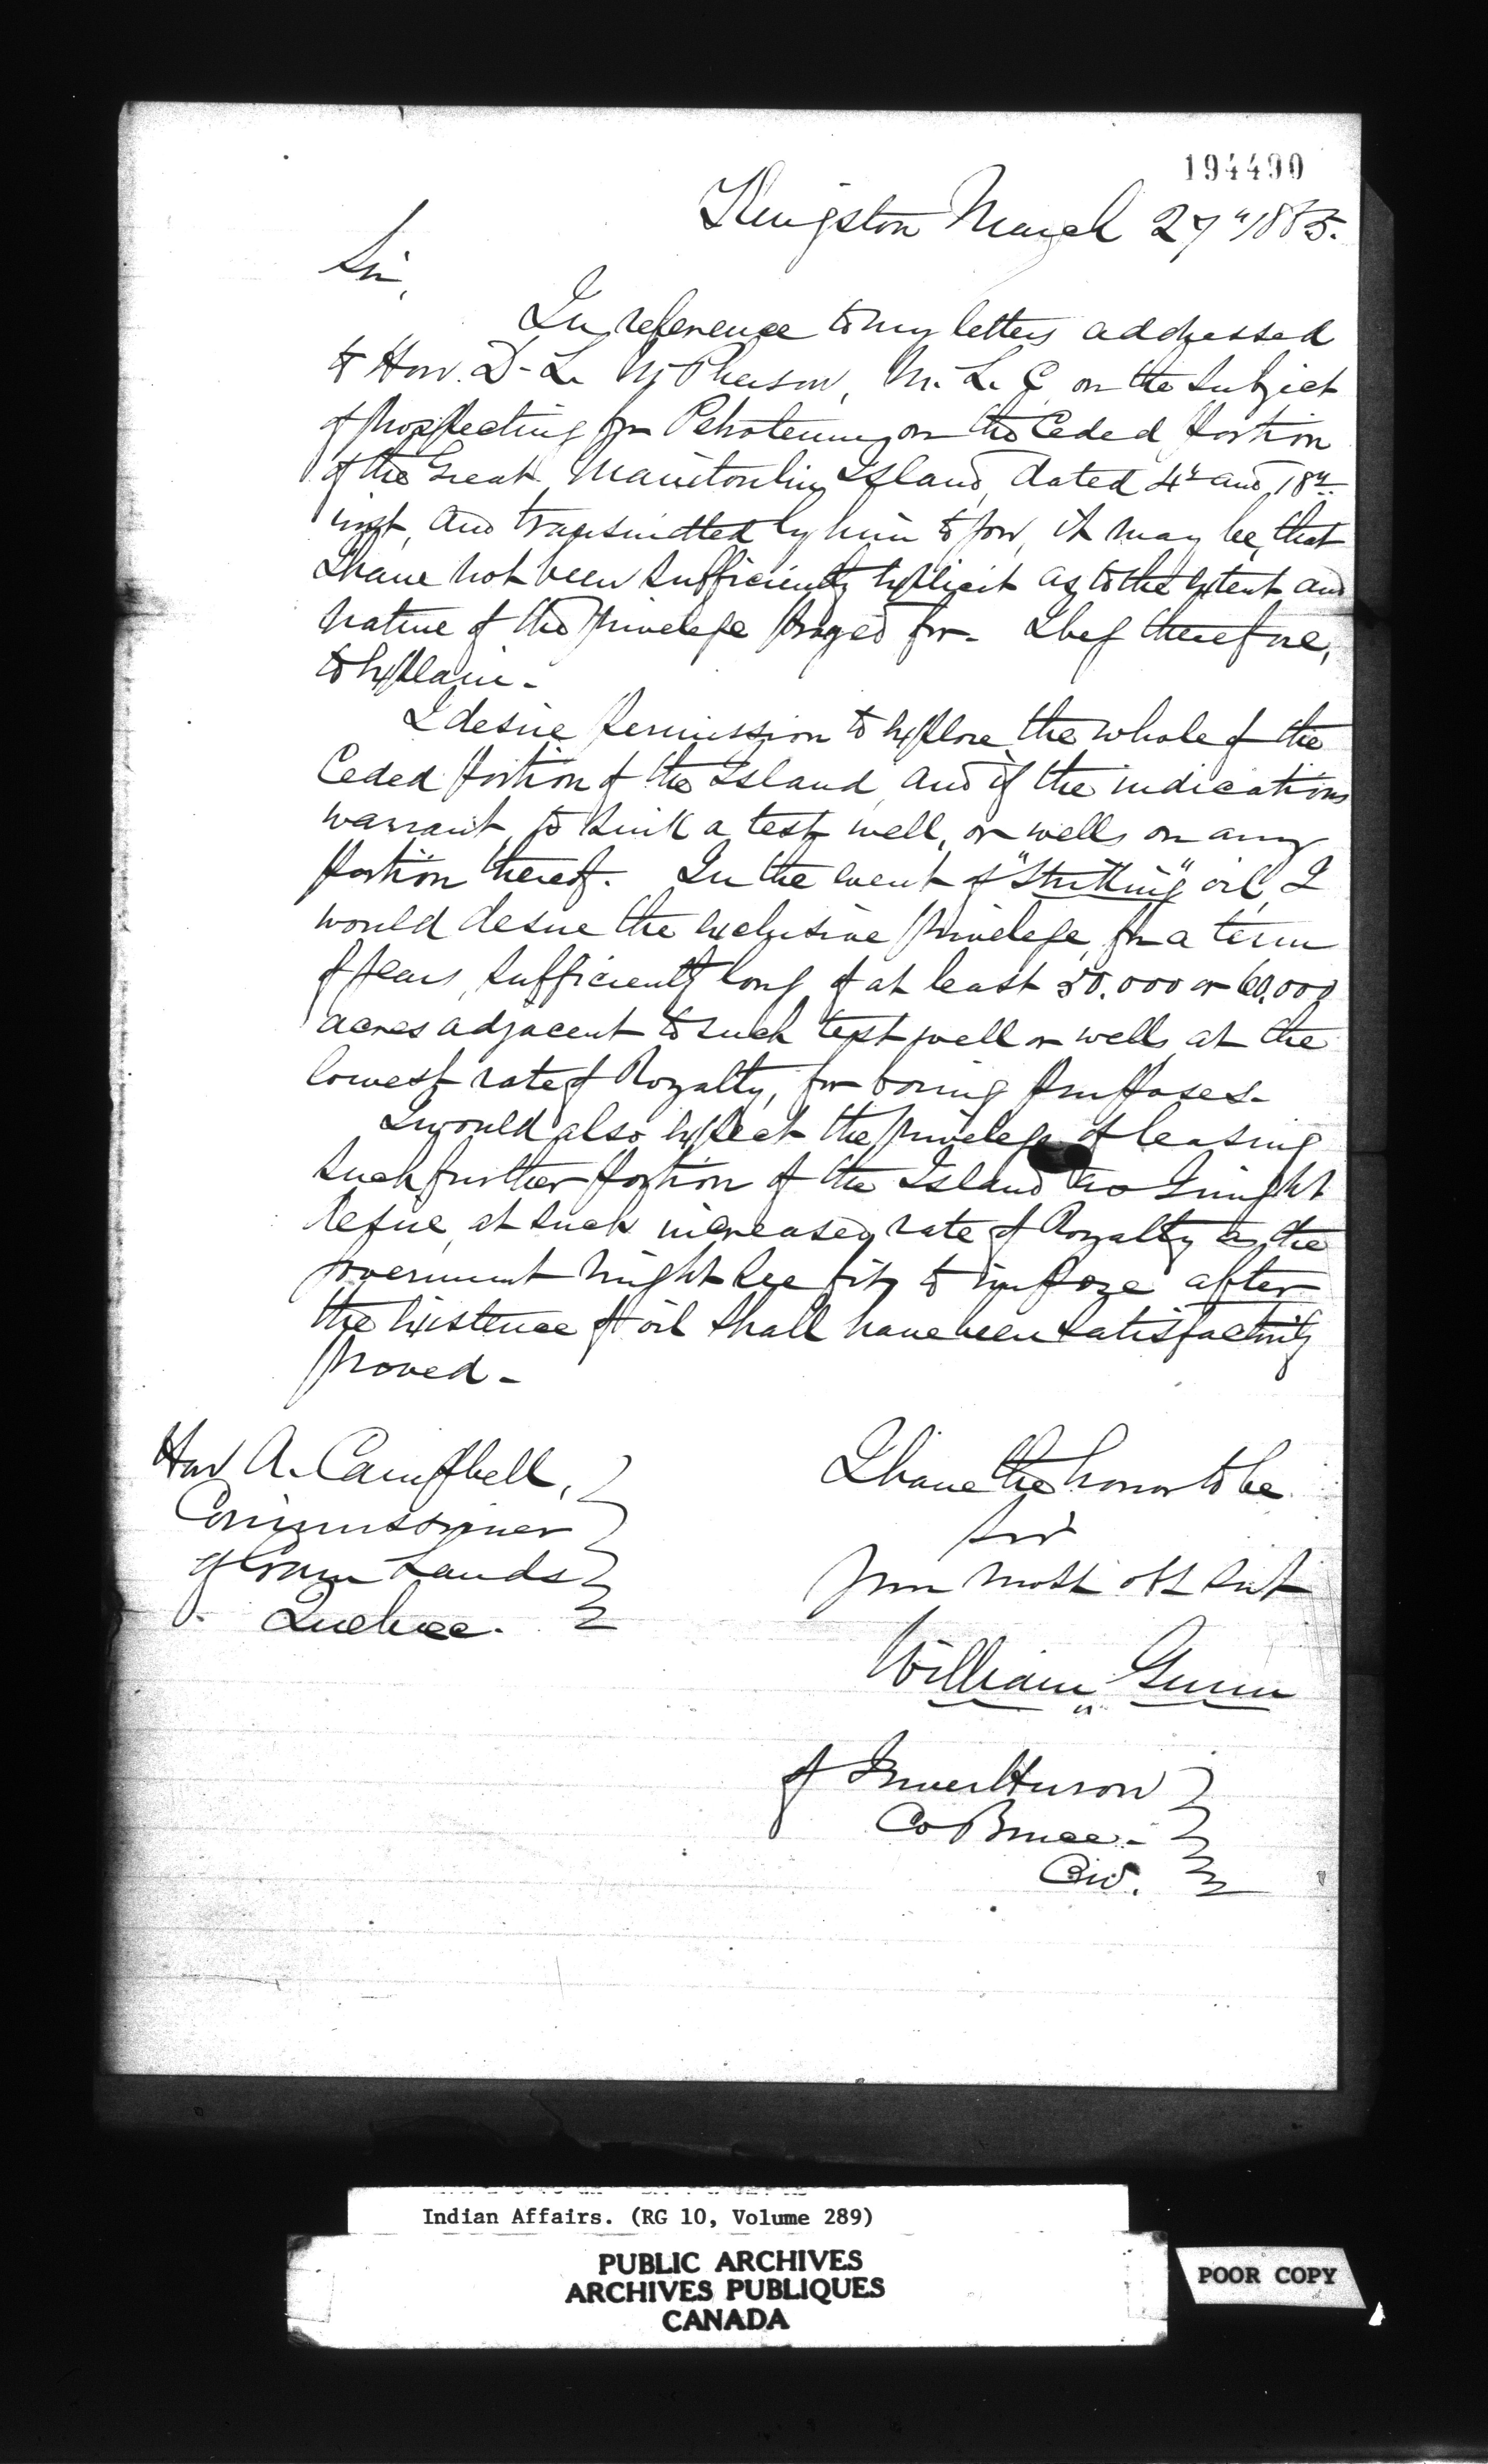 194490
Kingston March 27" 1865.
Sir,
In reference to my letters addressed
to Hon. D. L. McPherson, M. L. C, on the subject
of prospecting for Petroleum on the Ceded portion
of the Great Manitoulin Island, dated 4th and 18th
inst, and transmitted by him to you, it may be, that
I have not been sufficiently explicit as to the extent and
nature of the privelege prayed for. I beg therefore,
to explain -
I desire permission to explore the whole of the
Ceded portion of the Island, and if the indications
warrant, to sink a test well, or wells on any
portion thereof. In the event of "Striking" oil, I
would desire the exclusive privelege, for a term
of years, sufficiently long, of at least 50.000 or 60.000
acres adjacent to such test well or wells, at the
lowest rate of Royalty, for boring purposes.
I would also expect the privelege of leasing
such further portion of the Island as I might
desire, at such increased rate of Royalty as the
government might see fit, to impose after
the existence of oil shall have been satisfactorily
proved -
Hon A. Campbell,
Commissioner
of Crown Lands
Quebec.
I have the honor to be
Sir
your most obt Svt
William Gunn
of InverHuron
Co Bruce -
C.W.
Indian Affairs. (RG 10, Volume 289)
PUBLIC ARCHIVES
ARCHIVES PUBLIQUES
CANADA
POOR COPY